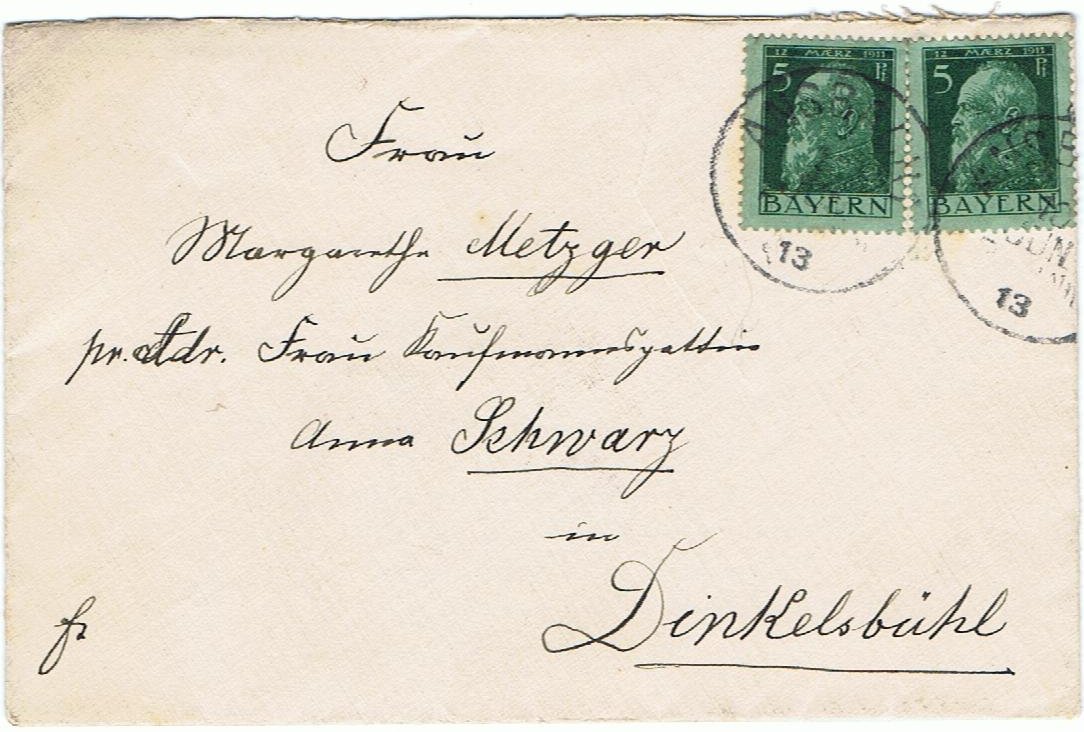 12 MÆRZ 1911 12 MÆRZ 1911
5 Pf 5 Pf
BAYERN BAYERN
13
13
Frau
Margarethe Metzger
pr. Adr. Frau Kaufmannsgattin
Anna Schwarz
in
Dinkelsbühl
fr